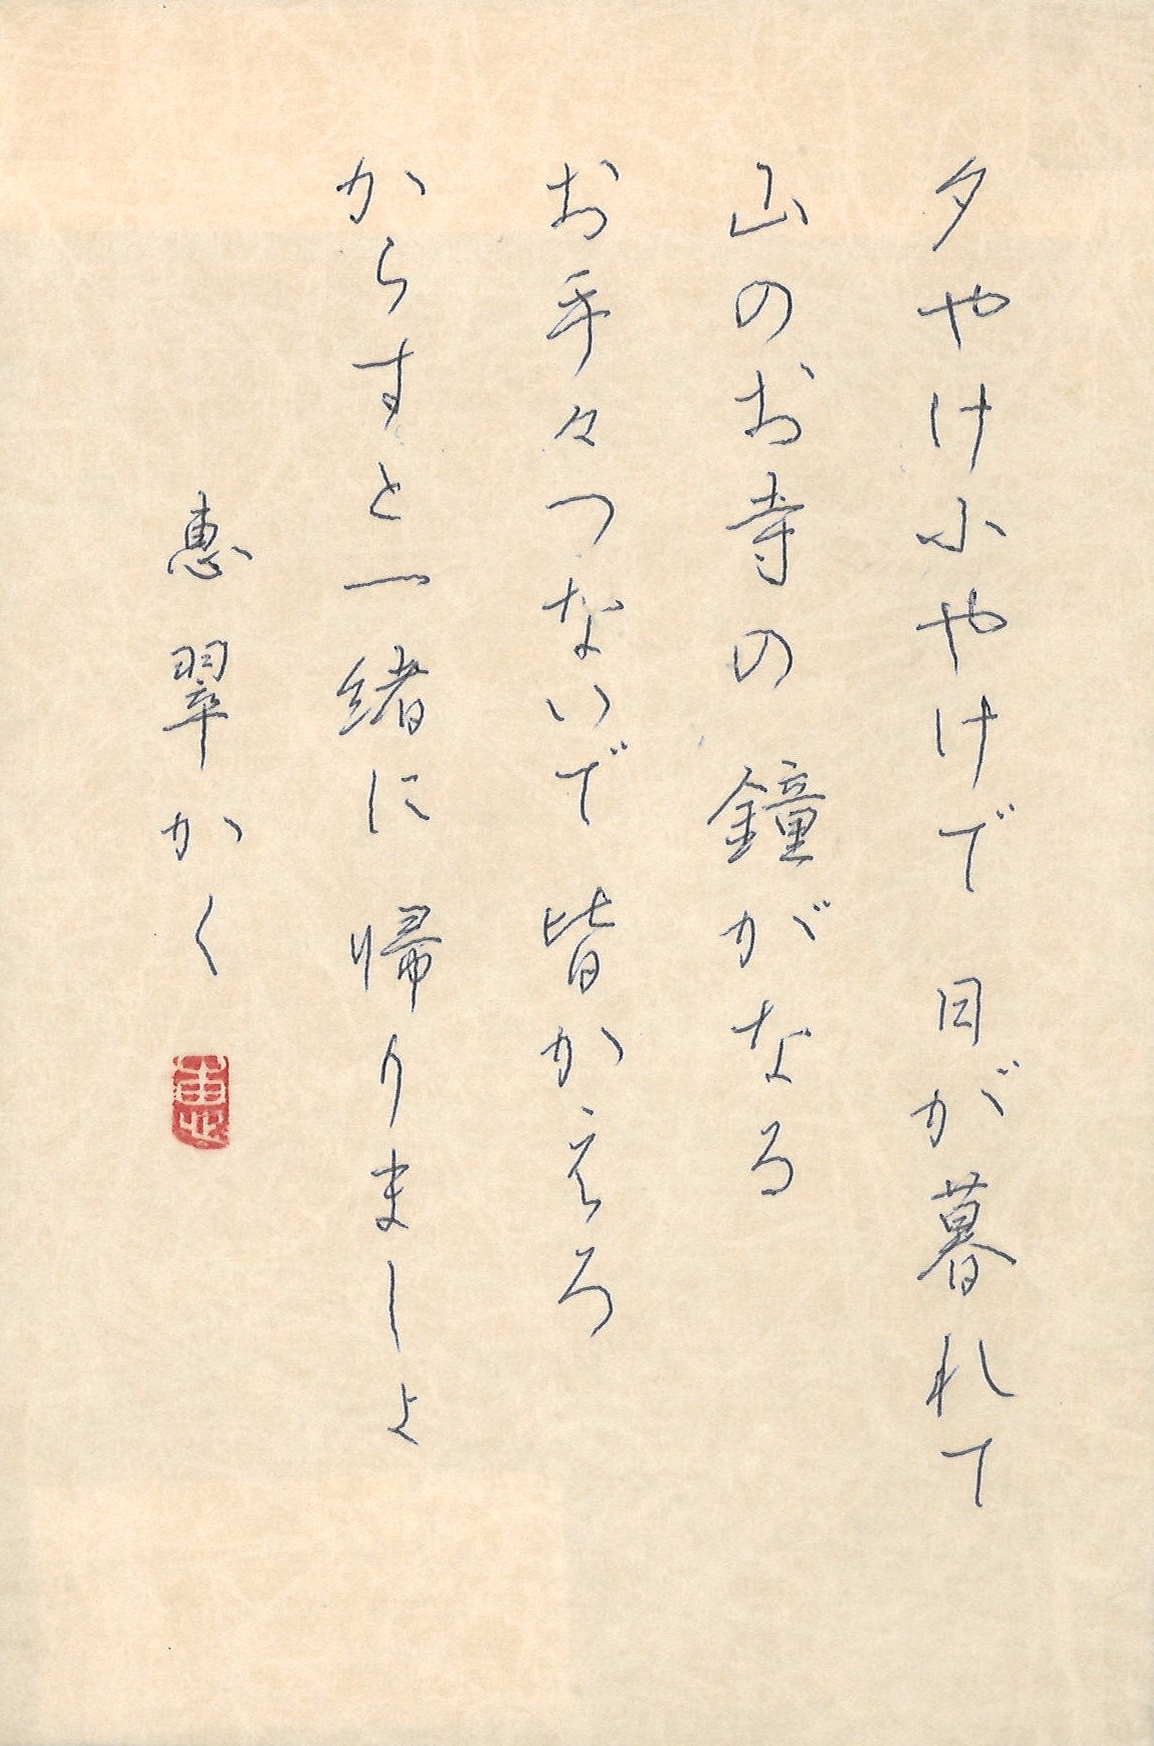 夕やけ小やけで 日が暮れて
山のお寺の 鐘がなる
お手々つないで 皆かえろ
からすと一緒に 帰りましょ
恵翠かく